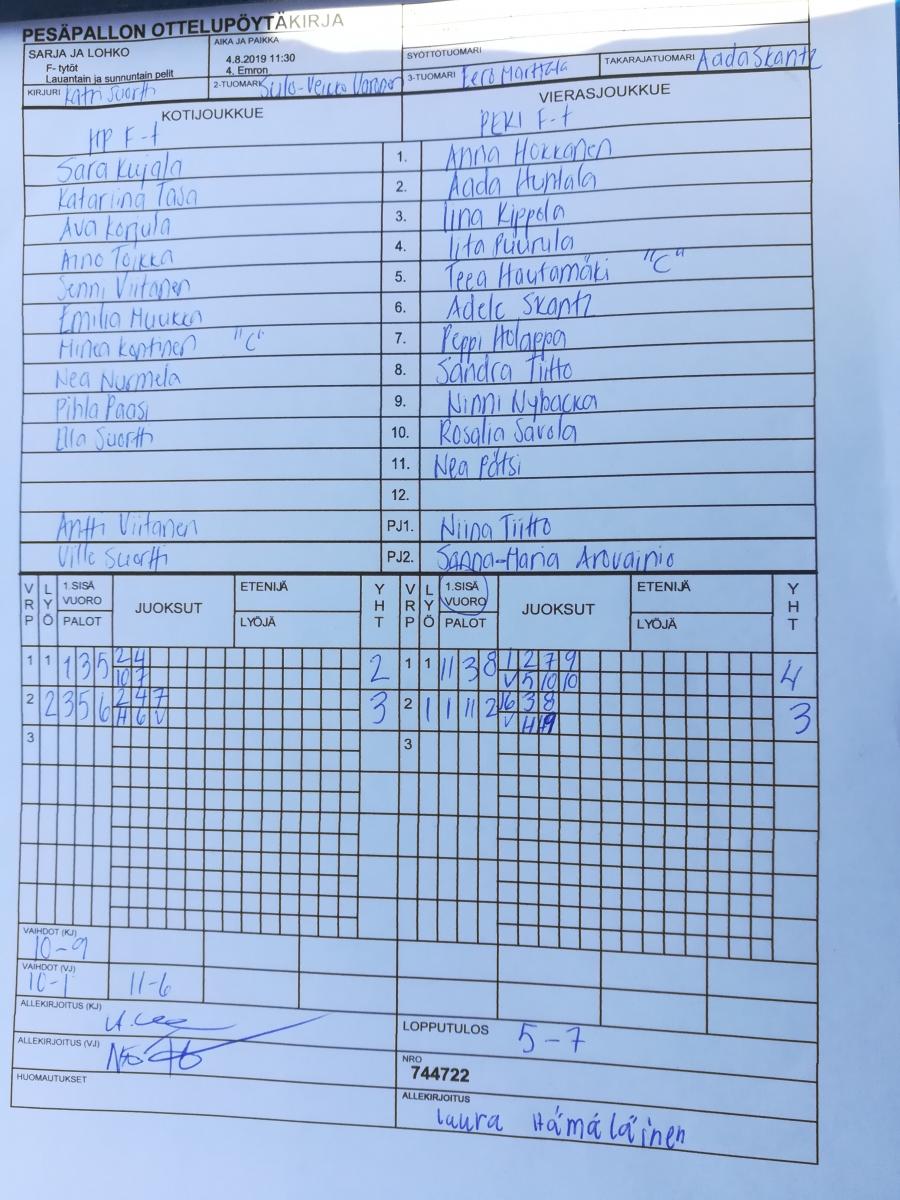 PESÄPALLON OTTELUPÖYTÄKIRJA
SARJA JA LOHKO
F- tytöt
Lauantain ja sunnuntain pelit
AIKA JA PAIKKA
4.8.2019 11:30
4, Emron
SYÖTTÖTUOMARI
TAKARAJATUOMARI Aada Skantz
KIRJURI Katri Suortti
2-TUOMARI Sulo-Veikko
3-TUOMARI Eero Marttala
KOTIJOUKKUE
VIERASJOUKKUE
HP F-t
PEKI F-t
Sara Kujala 1. Anna Hokkanen
Katariina Tasa 2. Aada Huhtala
Ava Korjula 3. Iina Kippola
Aino Toikka 4. Iita Puurula
Senni Viitanen 5. Teea Hautamäki "C"
Emilia Muukka 6. Adele Skantz
Minea Kontinen "C" 7. Peppi Holappa
Nea Nurmela 8. Sandra Tiitto
Pihla Paasi 9. Ninni Nybacka
Ella Suortti 10. Rosalia Savola
11. Nea Pätsi
12.
Antti Viitanen PJ1. Niina Tiitto
Ville Suortti PJ2. Sanna-Maria Arovainio
VRP LYÖ 1.SISÄ VUORO PALOT JUOKSUT ETENIJÄ LYÖJÄ YHT VRP LYÖ 1.SISÄ VUORO PALOT JUOKSUT ETENIJÄ LYÖJÄ YHT
1 1 1 3 5 2 4 2 1 1 11 3 8 1 2 7 9 4
10 7 V 5 10 10
2 2 3 5 6 2 4 7 3 2 1 1 11 2 3 8 3
H 6 V V 4
3 3
VAIHDOT (KJ)
10-9
VAIHDOT (VJ)
10-1 11-6
ALLEKIRJOITUS (KJ)
LOPPUTULOS 5-7
ALLEKIRJOITUS (VJ)
NRO
744722
HUOMAUTUKSET
ALLEKIRJOITUS
Laura Hämäläinen